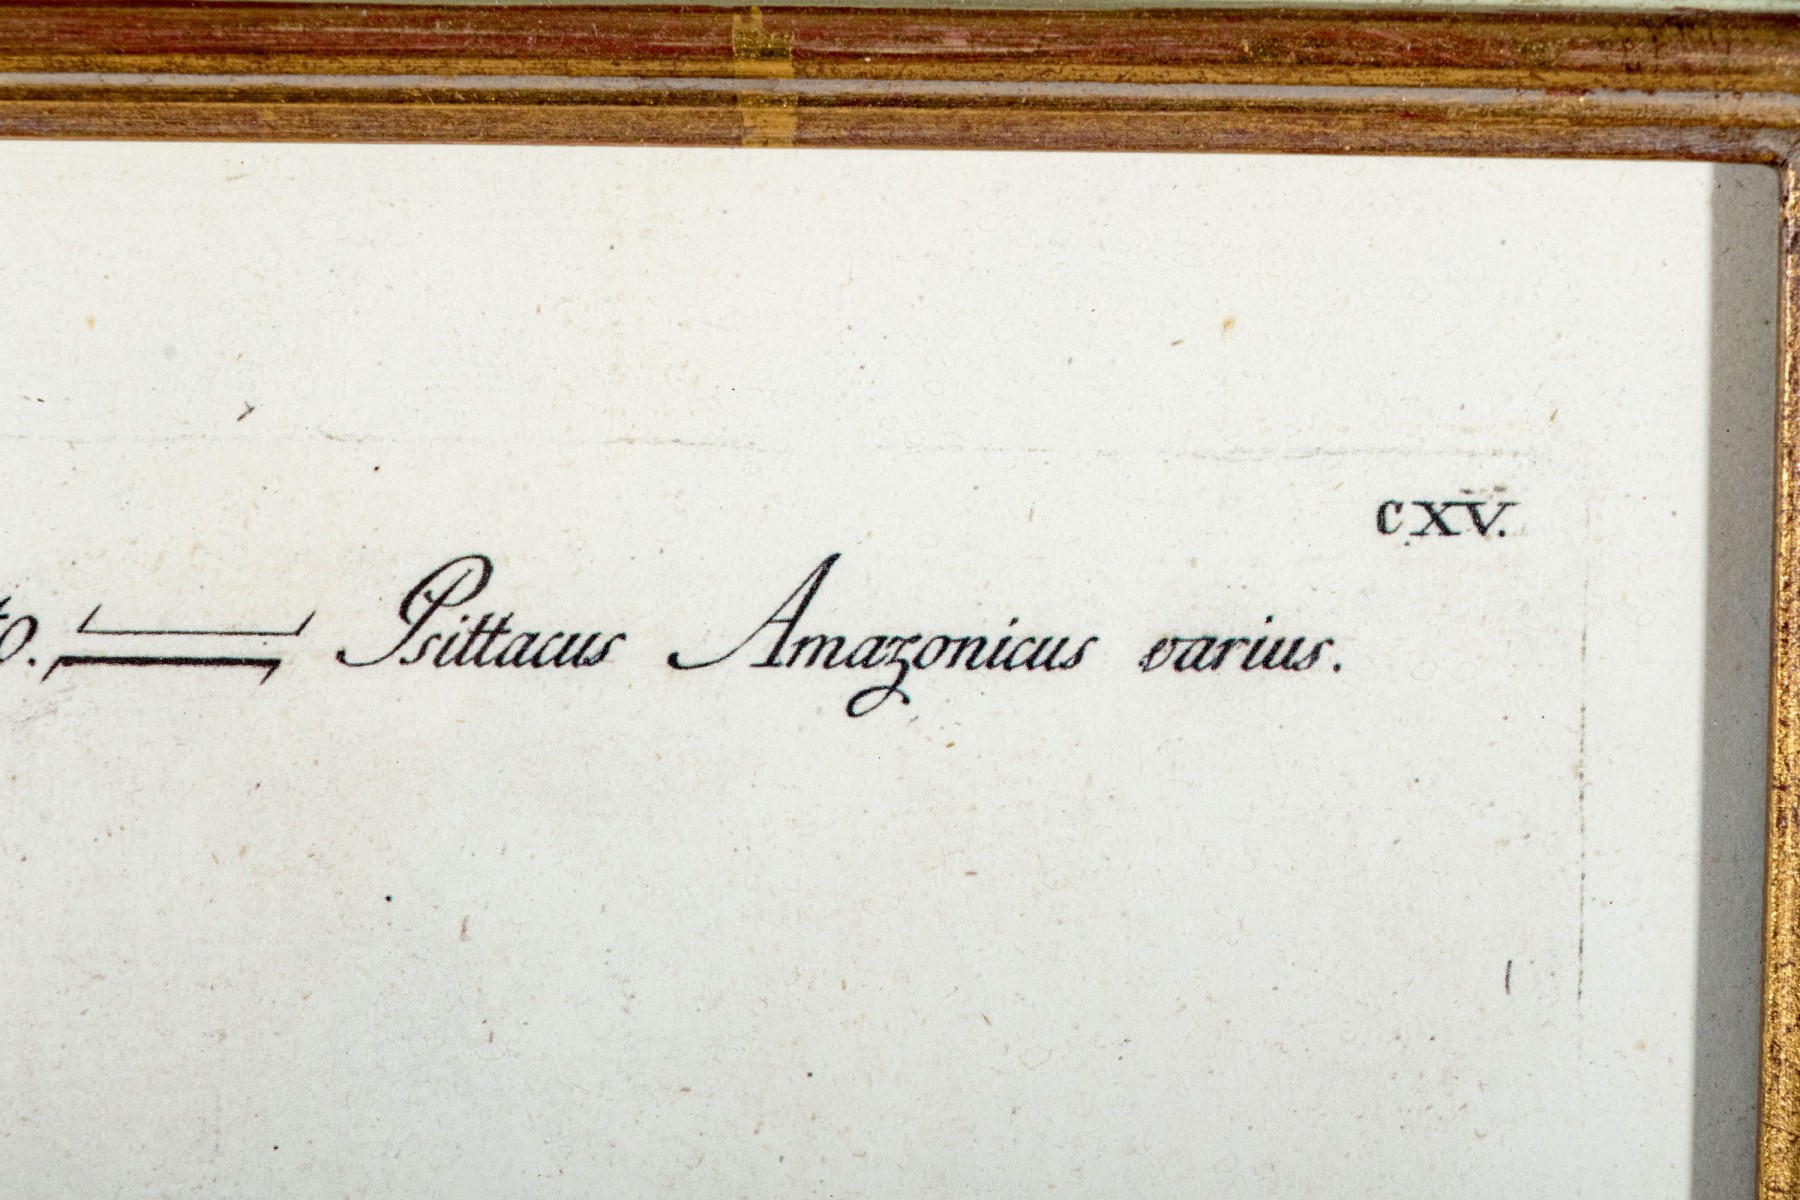 CXV.
to. Psittacus Amazonicus varius.